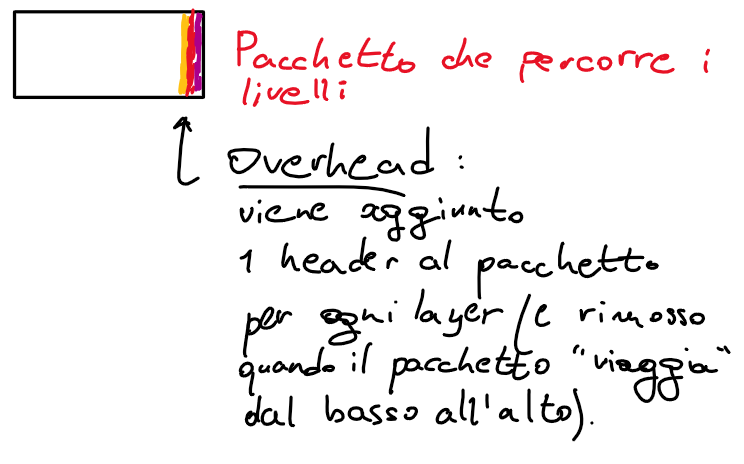 Pacchetto che percorre i
livelli
Overhead:
viene aggiunto
1 header al pacchetto
per ogni layer (e rimosso
quando il pacchetto "viaggia"
dal basso all'alto).